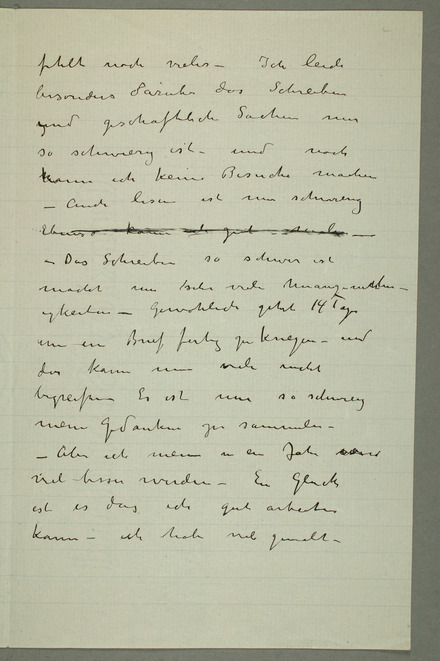 fehlt noch vieles – Ich leide
besonders darunter das Schreiben
und geschäftliche Sachen mir
so schwierig ist – und noch
kann ich keine Besuche machen
– Auch lesen ist mir schwierig
Ebenso kann ich gut
– Das Schreiben so schwer ist
macht mir sehr viele Unangenehm-
igkeiten – Gewöhnlich geht 14 Tage
um ein Brief fertig zu kriegen – und
das kann man viele nicht
begreifen Es ist mir so schwierig
meine Gedanken zu sammeln –
– Aber ich meine in ein Jahr
viel besser werden – Ein Glück
ist es das ich gut arbeiten
kann – ich habe viel gemalt –